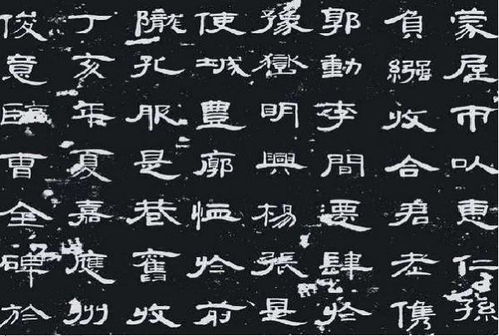 蒙屋市以惠仁孫
負繈收合君老儁
郭動李間還肆於
豫嶽明興楊張是
使城豐廓恤於前
隴孔服是巷舊收
丁亥年夏嘉應州
俊意臨曹全碑於